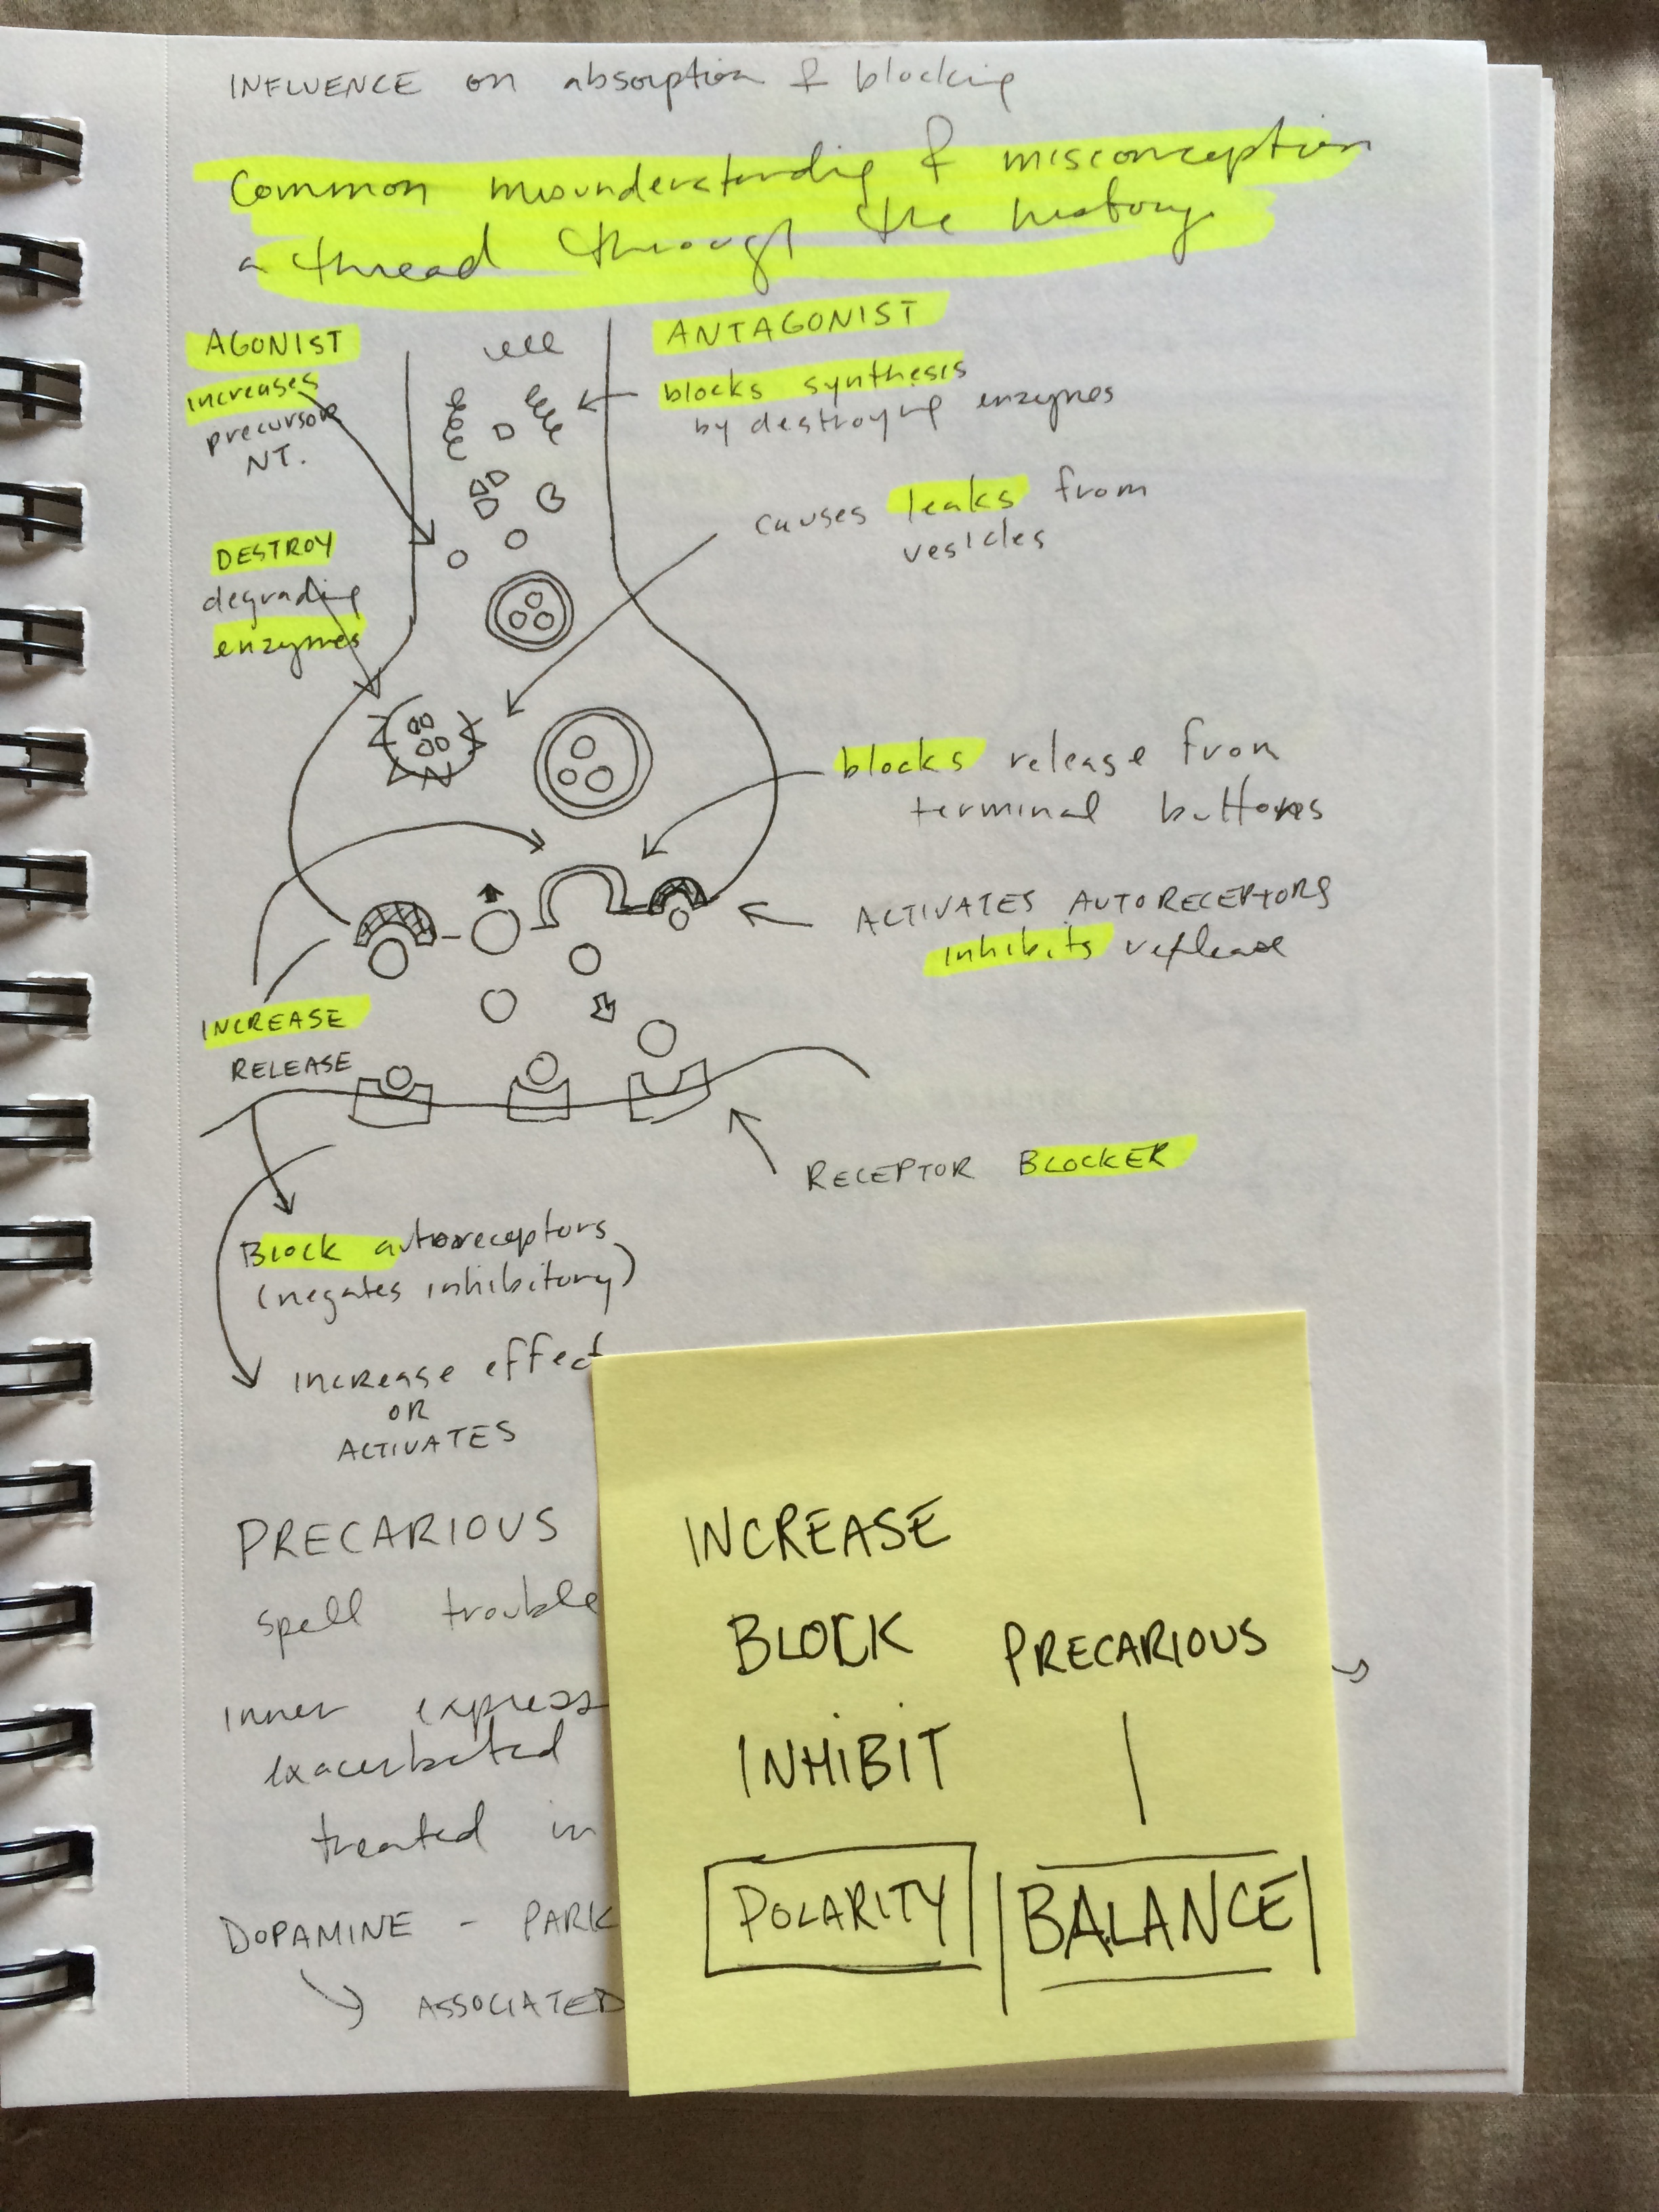 INFLUENCE on absorption & blocking
Common misunderstanding & misconception
a thread through the history
AGONIST
increases
precursor
NT.
DESTROY
degrading
enzymes
ANTAGONIST
blocks synthesis
by destroying enzymes
causes leaks from
vesicles
blocks release from
terminal buttons
ACTIVATES AUTORECEPTORS
inhibits release
INCREASE
RELEASE
RECEPTOR BLOCKER
Block autoreceptors
(negates inhibitory)
increase effect
OR
ACTIVATES
PRECARIOUS
spell trouble
inner express
exacerbated
treated in
DOPAMINE - PARK
ASSOCIATED
INCREASE
BLOCK PRECARIOUS
INHIBIT
POLARITY BALANCE